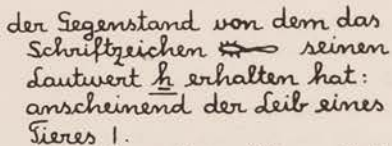 der Gegenstand von dem das
Schriftzeichen 𓄡 seinen
Lautwert ẖ erhalten hat:
anscheinend der Leib eines
Tieres I.